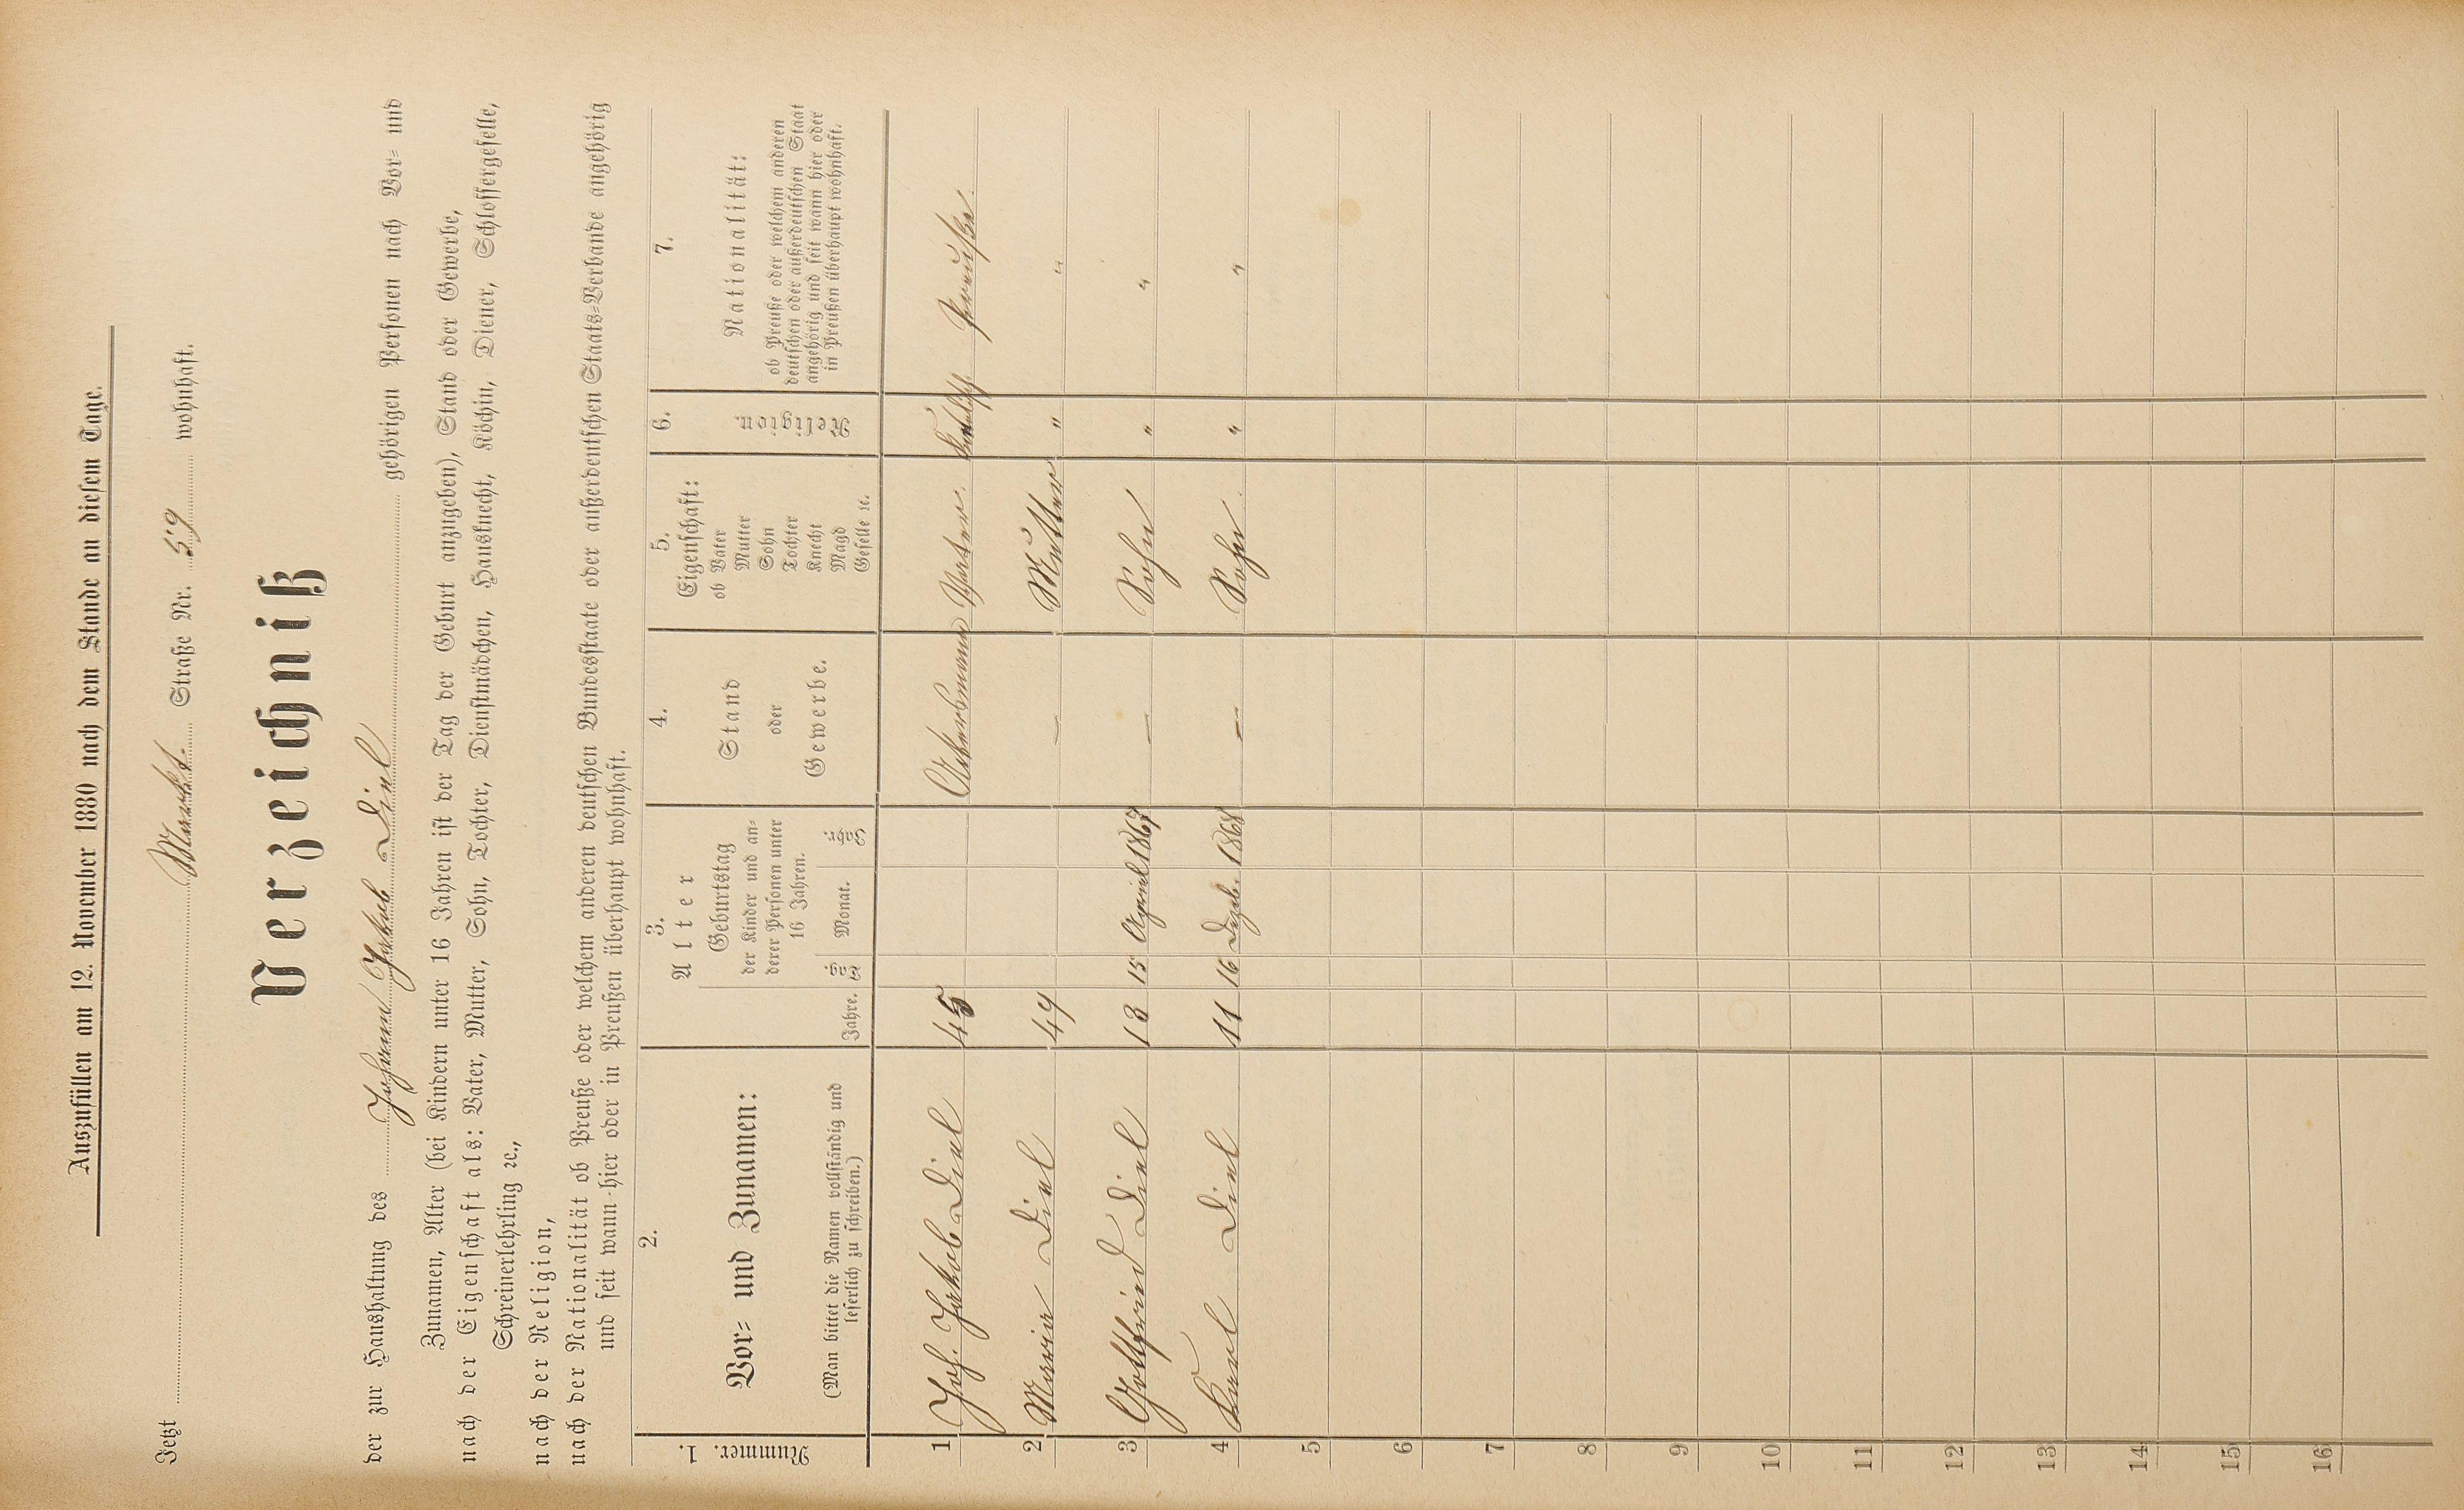 Auszufüllen am 12. November 1880 nach dem Stande an diesem Tage.
Jetzt Markt. Straße Nr. 59 wohnhaft.
Verzeichniß
der zur Haushaltung des Johann Jakob Diel gehörigen Personen nach Vor- und
Zunamen, Alter (bei Kindern unter 16 Jahren ist der Tag der Geburt anzugeben), Stand oder Gewerbe,
nach der Eigenschaft als: Vater, Mutter, Sohn, Tochter, Dienstmädchen, Hausknecht, Köchin, Diener, Schlossergeselle,
Schreinerlehrling ꝛc.,
nach der Religion,
nach der Nationalität ob Preuße oder welchem anderen deutschen Bundesstaate oder außerdeutschen Staats-Verbande angehörig
und seit wann hier oder in Preußen überhaupt wohnhaft.
1. Nummer.
2.
Vor- und Zunamen:
(Man bittet die Namen vollständig und
leserlich zu schreiben.)
3.
Alter
Jahre.
Geburtstag
der Kinder und an-
derer Personen unter
16 Jahren.
Tag Monat. Jahr.
4.
Stand
oder
Gewerbe.
5.
Eigenschaft:
ob Vater
Mutter
Sohn
Tochter
Knecht
Magd
Geselle ꝛc.
6.
Religion.
7.
Nationalität:
ob Preuße oder welchem anderen
deutschen oder außerdeutschen Staat
angehörig und seit wann hier oder
in Preußen überhaupt wohnhaft.
1 Joh. Jakob Diel 45 Ackersmann Vater. Katholisch. Preuße.
2 Maria Diel 49 — Mutter " "
3 Gottfried Diel 13 15 April 1867 — Sohn " "
4 Karl Diel 11 16 Dezb. 1868 — Sohn. " "
5
6
7
8
9
10
11
12
13
14
15
16